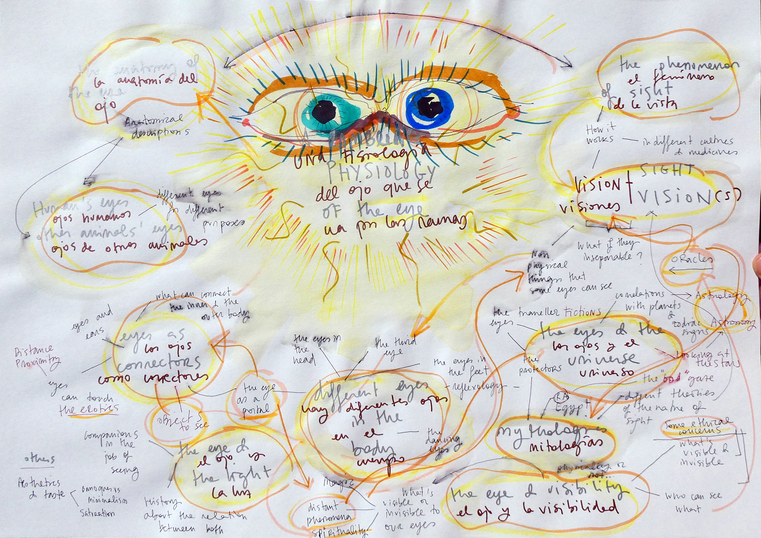 the anatomy of
la anatomía del
the eye
ojo
Anatomical
descriptions
Human's eyes
ojos humanos
other animals' eyes
ojos de otros animales
different eyes
for different
purposes
una fisiología
PHYSIOLOGY
del ojo que se
of the eye
va por las ramas
the phenomenon
el fenómeno
of sight
de la vista
How it
works
in different cultures
& medicines
VISION + SIGHT
visiones VISION(S)
what if they
inseparable?
Non
physical
things that
some eyes can see
oracles
Astrology
Astronomy
correlations
with planets &
zodiac
signs
looking at the stars
the traveller
eyes
Fictions
the eyes & the
los ojos y el
universe
universo
the
protectors
Egypt
the "bad" gaze
different theories
of the nature of
sight
mythologies
mitologías
some ethical
concerns
what's
visible &
invisible
who can see
what
the eye & visibility
el ojo y la visibilidad
what can connect
the inner & the
outer body
eyes and
ears
Distance
Proximity
eyes as
los ojos
connectors
como conectores
eyes
can touch
the erotics
objects
to see
companions
in the
job of
seeing
the eye
as a
portal
the eye &
el ojo y
the light
la luz
History
about the relation
between both
others
Aesthetics
& taste
Minimalism
Saturation
the eyes in
the
head
the third
eye
the eyes in
the feet
reflexology
different eyes
hay diferentes ojos
in the
en el
body
cuerpo
the dancing
eyes
Magic
distant
phenomena
spirituality
what is
visible &
invisible to
our eyes